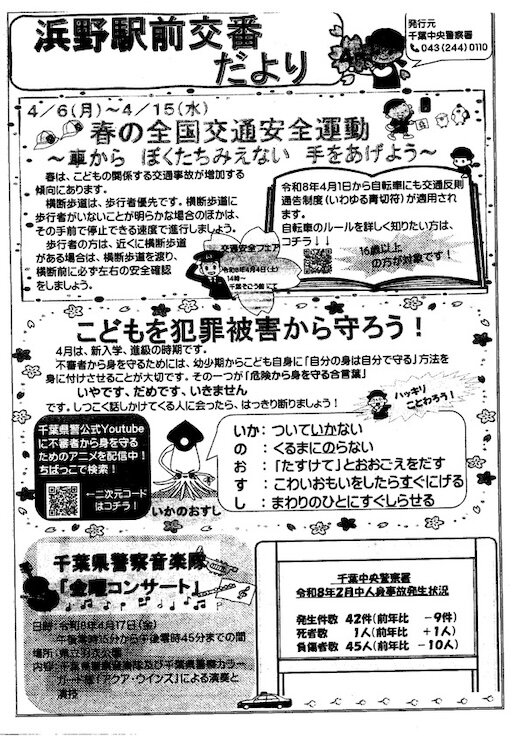 浜野駅前交番
だより
発行元
千葉中央警察署
043(244)0110
4/6(月)～4/15(水)
春の全国交通安全運動
～車から ぼくたちみえない 手をあげよう～
春は、こどもの関係する交通事故が増加する
傾向にあります。
横断歩道は、歩行者優先です。横断歩道に
歩行者がいないことが明らかな場合のほかは、
その手前で停止できる速度で進行しましょう。
歩行者の方は、近くに横断歩道
がある場合は、横断歩道を渡り、
横断前に必ず左右の安全確認
をしましょう。
交通安全フェア
令和8年4月4日(土)
14時～
千葉そごう前にて
令和8年4月1日から自転車にも交通反則
通告制度(いわゆる青切符)が適用され
ます。
自転車のルールを詳しく知りたい方は、
コチラ！↓↓
16歳以上
の方が対象です！
こどもを犯罪被害から守ろう！
4月は、新入学、進級の時期です。
不審者から身を守るためには、幼少期からこども自身に「自分の身は自分で守る」方法を
身に付けさせることが大切です。その一つが「危険から身を守る合言葉」
いやです、だめです、いきません
です。しつこく話しかけてくる人に会ったら、はっきり断りましょう！
ハッキリ
ことわろう！
千葉県警公式Youtube
に不審者から身を守る
ためのアニメを配信中！
ちばっこで検索！
←二次元コード
はコチラ！
いかのおすし
いか：ついていかない
の：くるまにのらない
お：「たすけて」とおおごえをだす
す：こわいおもいをしたらすぐにげる
し：まわりのひとにすぐしらせる
千葉県警察音楽隊
「金曜コンサート」
日時：令和8年4月17日(金)
午後零時15分から午後零時45分までの間
場所：県立羽衣公園
内容：千葉県警察音楽隊及び千葉県警察カラー
ガード隊「アクア・ウインズ」による演奏と
演技
千葉中央警察署
令和8年2月中人身事故発生状況
発生件数 42件(前年比 －9件)
死者数 1人(前年比 ＋1人)
負傷者数 45人(前年比 －10人)